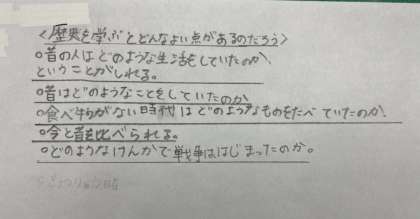 <歴史を学ぶとどんなよい点があるのだろう>
○昔の人はどのような生活をしていたのか、
ということがしれる。
○昔はどのようなことをしていたのか
○食べ物がない時代はどのようなものをたべていたのか、
○今と昔を比べられる。
○どのようなけんかで戦争ははじまったのか。